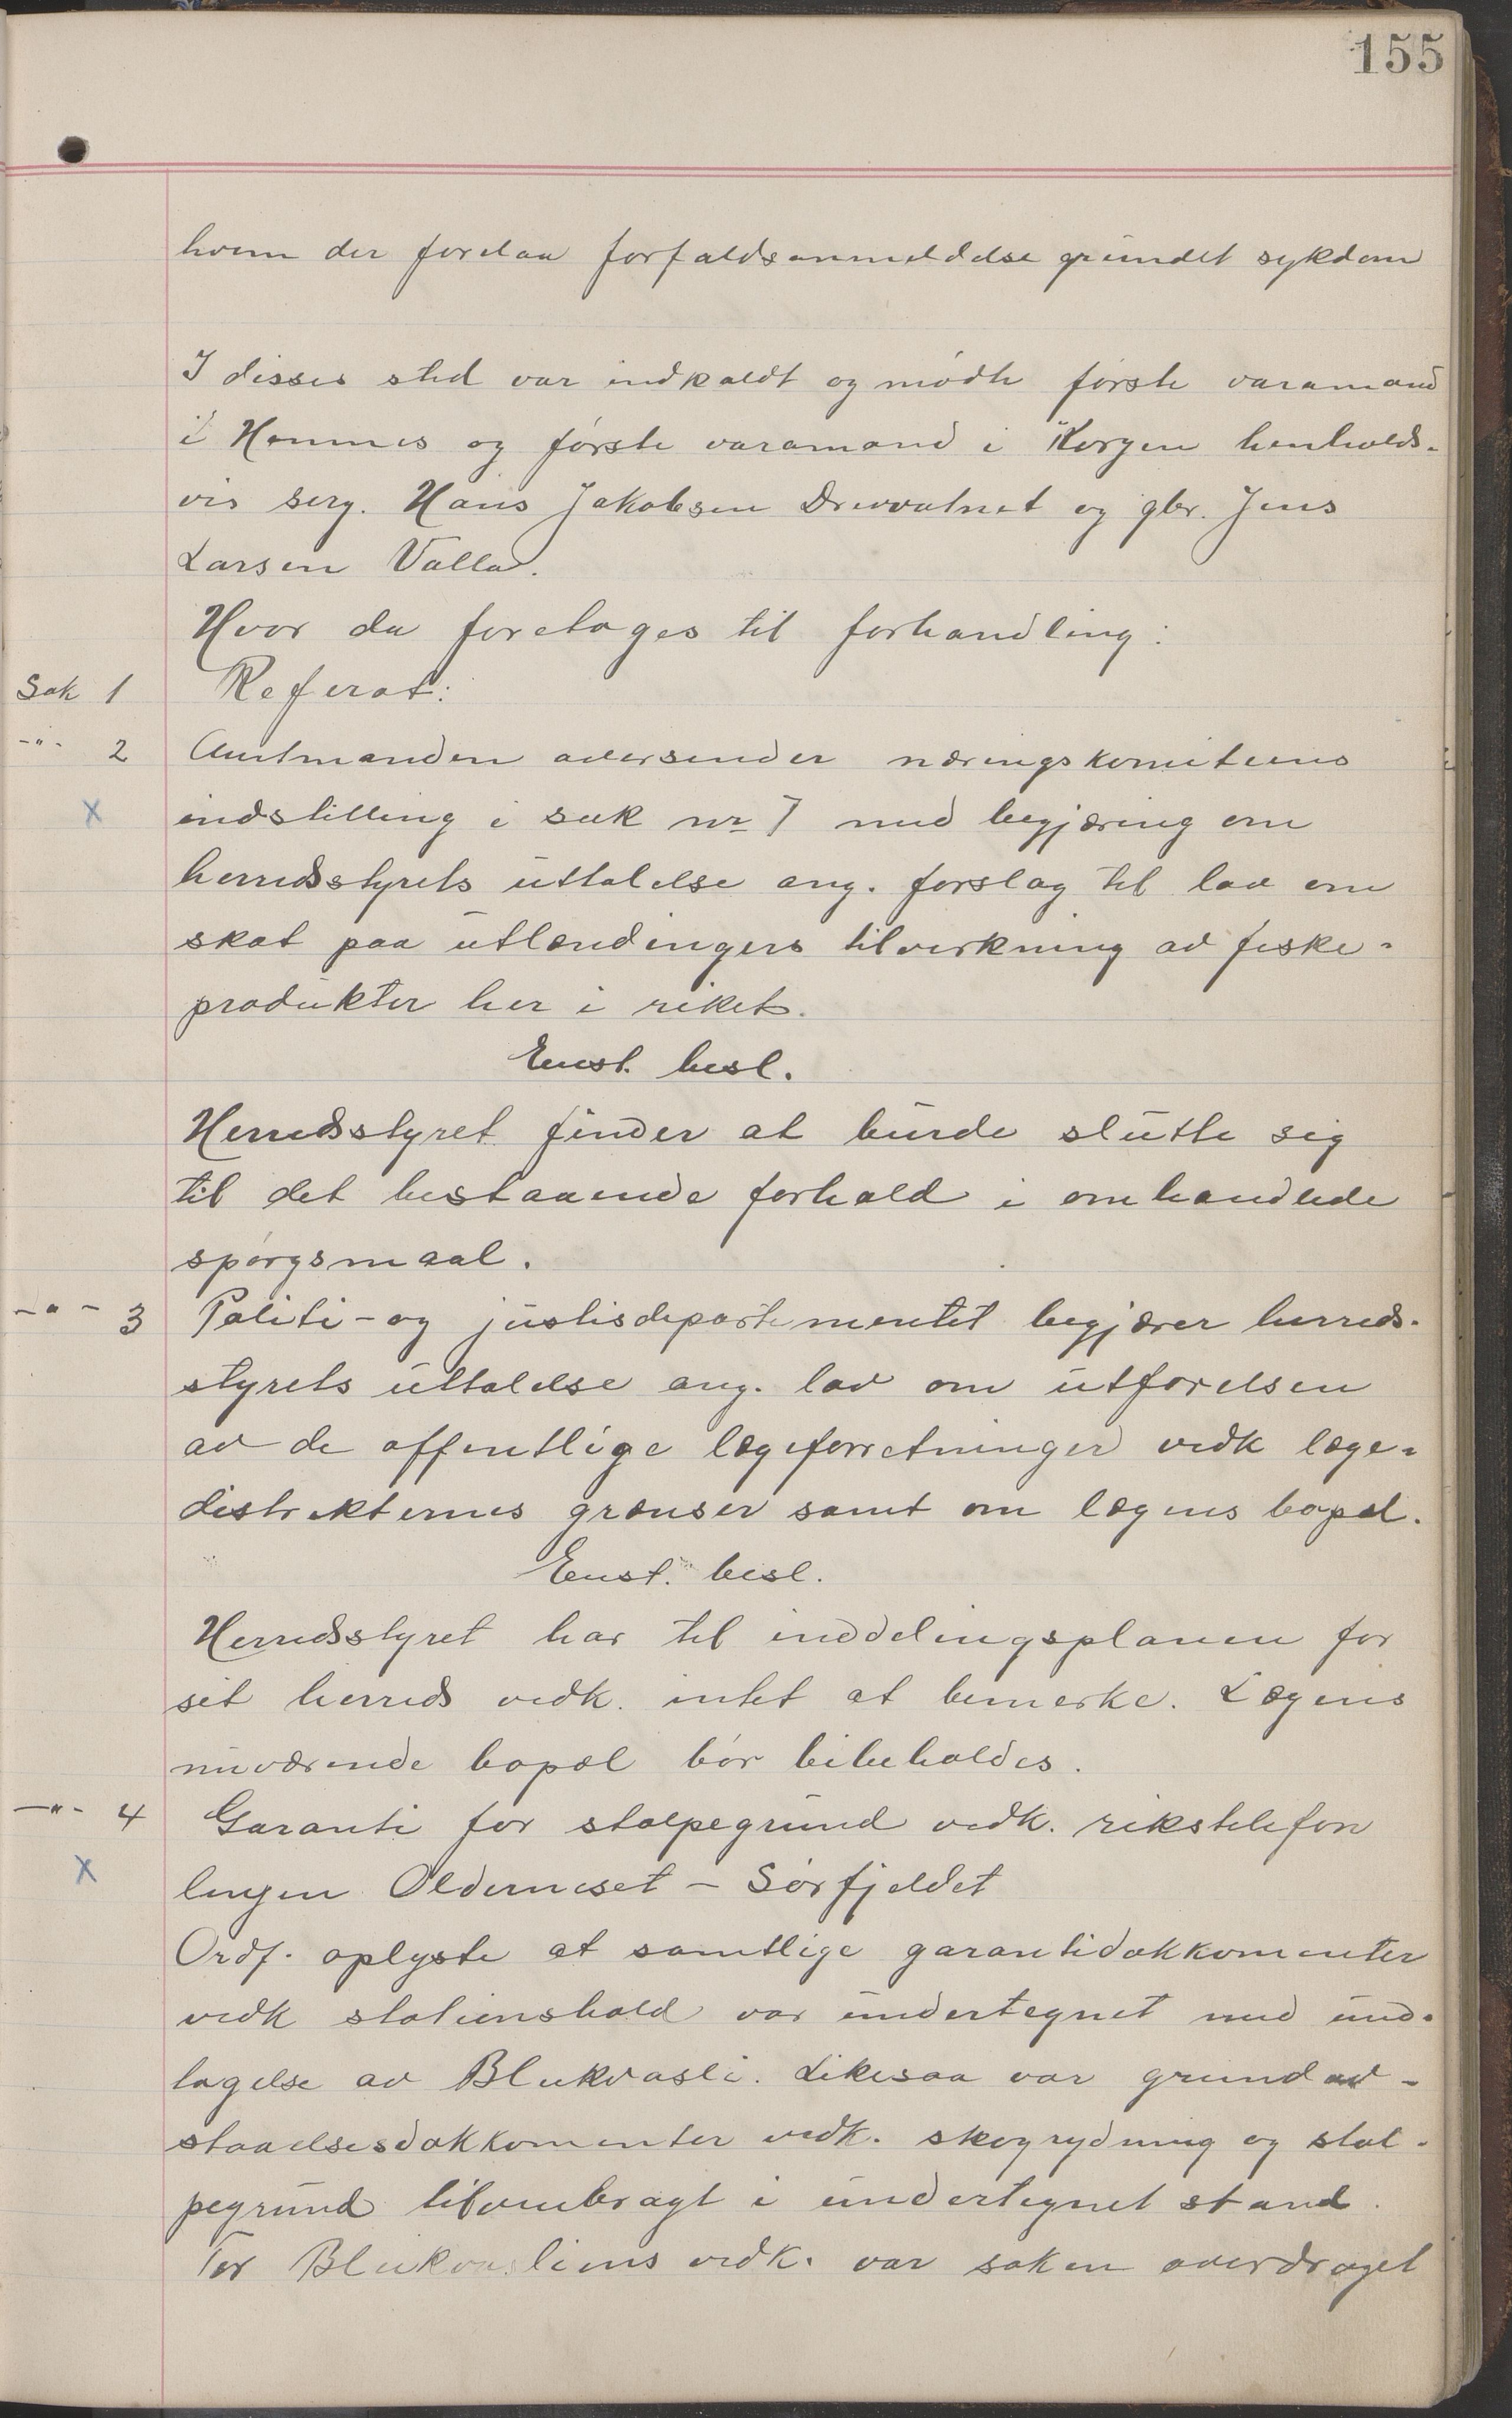 155
hvem der forelaa forfaldsanmeldelse grundet sykdom
I disses sted var indkaldt og mødte første varamand
i Hemnes og første varamand i Korgen henholds-
vis serg. Hans Jakobsen Drevvatnet og gbr. Jens
Larsen Valla.
Hvor da foretages til forhandling:
Sak 1 Referat:
-"- 2 Amtmanden oversender næringskomiteens
X indstilling i sak nr 7 med begjæring om
herredsstyrets uttalelse ang. forslag til lov om
skat paa utlændingers tilvirkning av fiske-
produkter her i riket.
Enst. besl.
Herredsstyret finder at burde slutte sig
til det bestaaende forhold i omhandlede
spørgsmaal.
-"- 3 Politi- og justisdepartementet begjærer herreds-
styrets uttalelse ang. lov om utførelsen
av de offentlige lægeforretninger vedk læge-
distrikternes grænser samt om lægens bopæl.
Enst. besl.
Herredsstyret har til inddelingsplanen for
sit herreds vedk. intet at bemerke. Lægens
nuværende bopæl bør bibeholdes.
-"- 4 Garanti for stolpegrund vedk. rikstelefon
X linjen Olderneset - Sørfjeldet
Ordf. oplyste at samtlige garantidokkomenter
vedk stationshold var undertegnet med und-
tagelse av Blukvasli. Likesaa var grundav-
staaelsesdokkomenter vedk. skogrydning og stol-
pegrund tilveiebragt i undertegnet stand.
For Blukvasliens vedk. var saken overdraget